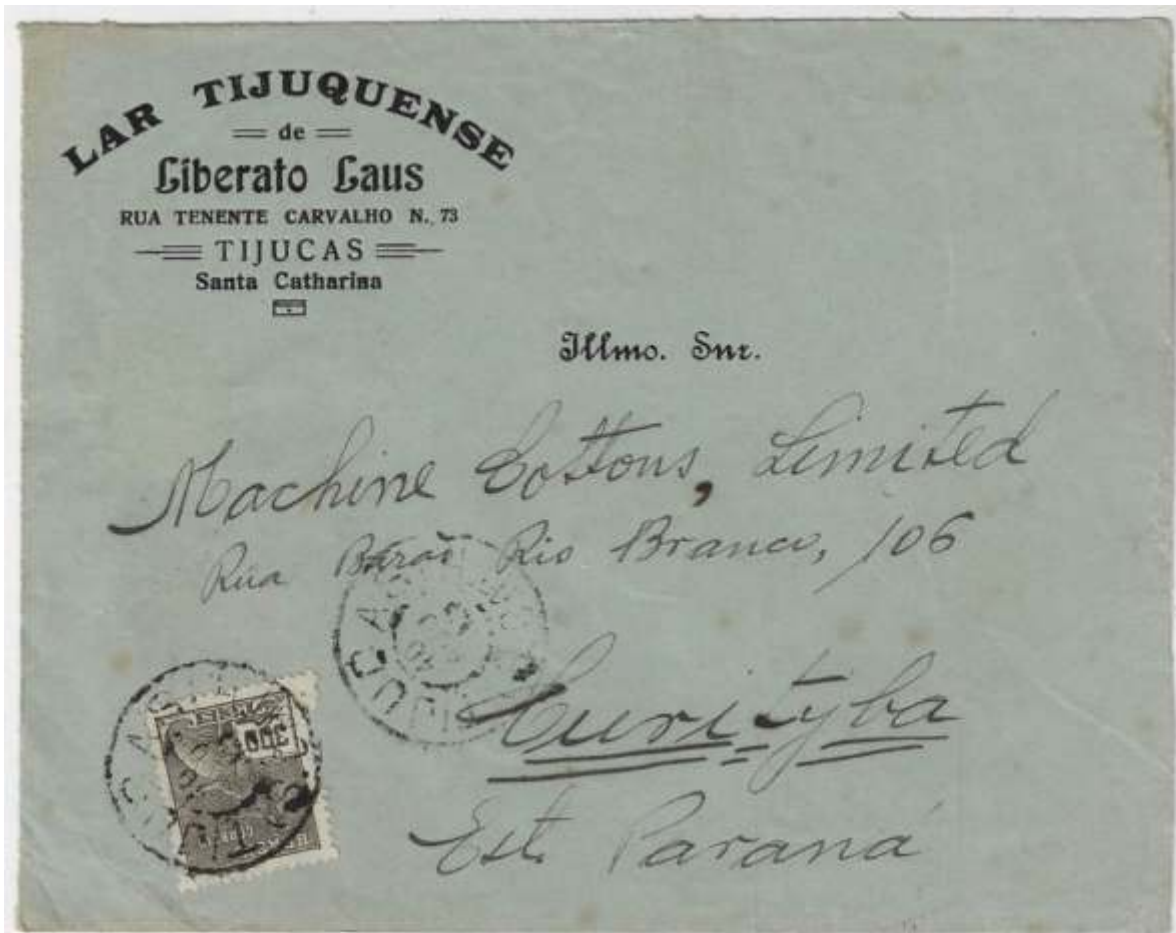 LAR TIJUQUENSE
de
Liberato Laus
RUA TENENTE CARVALHO N. 73
TIJUCAS
Santa Catharina
Illmo. Snr.
Machine Cottons, Limited
Rua Barão Rio Branco, 106
Curityba
Est. Paraná
300